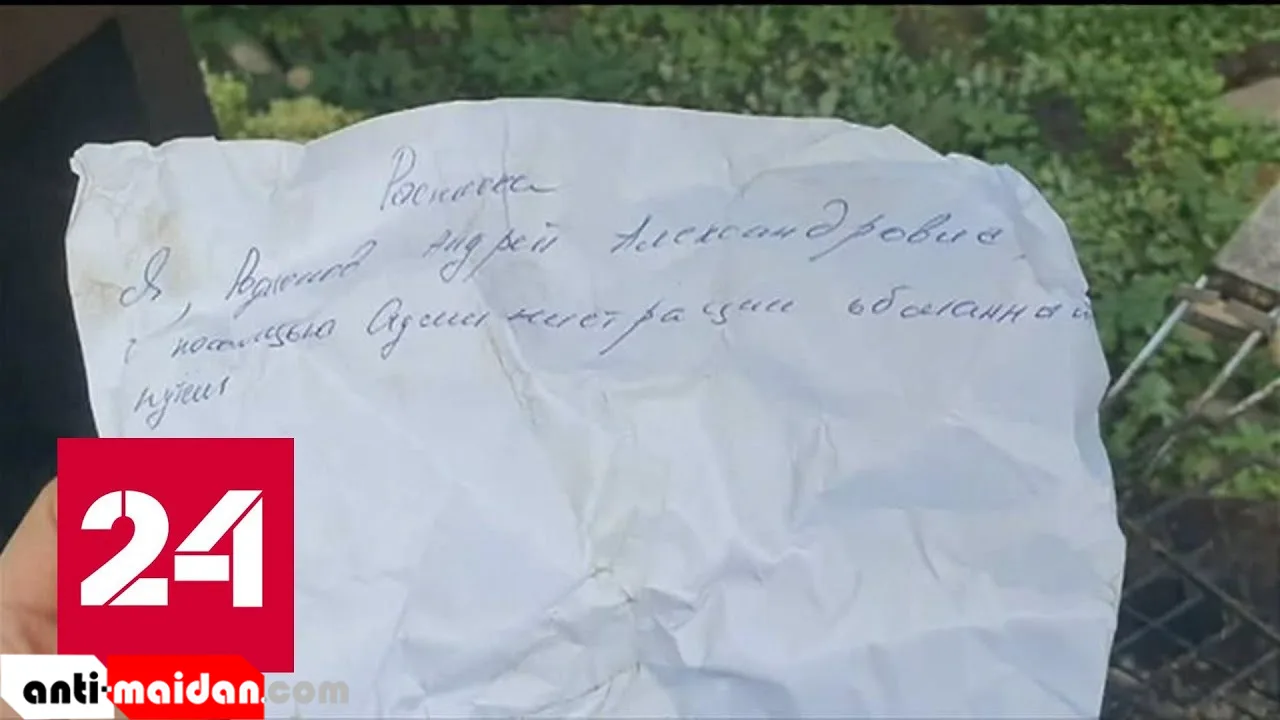 Расписка
Я, Андрей Александрович
с помощью Администрации обманным
путем
24
anti-maidan.com